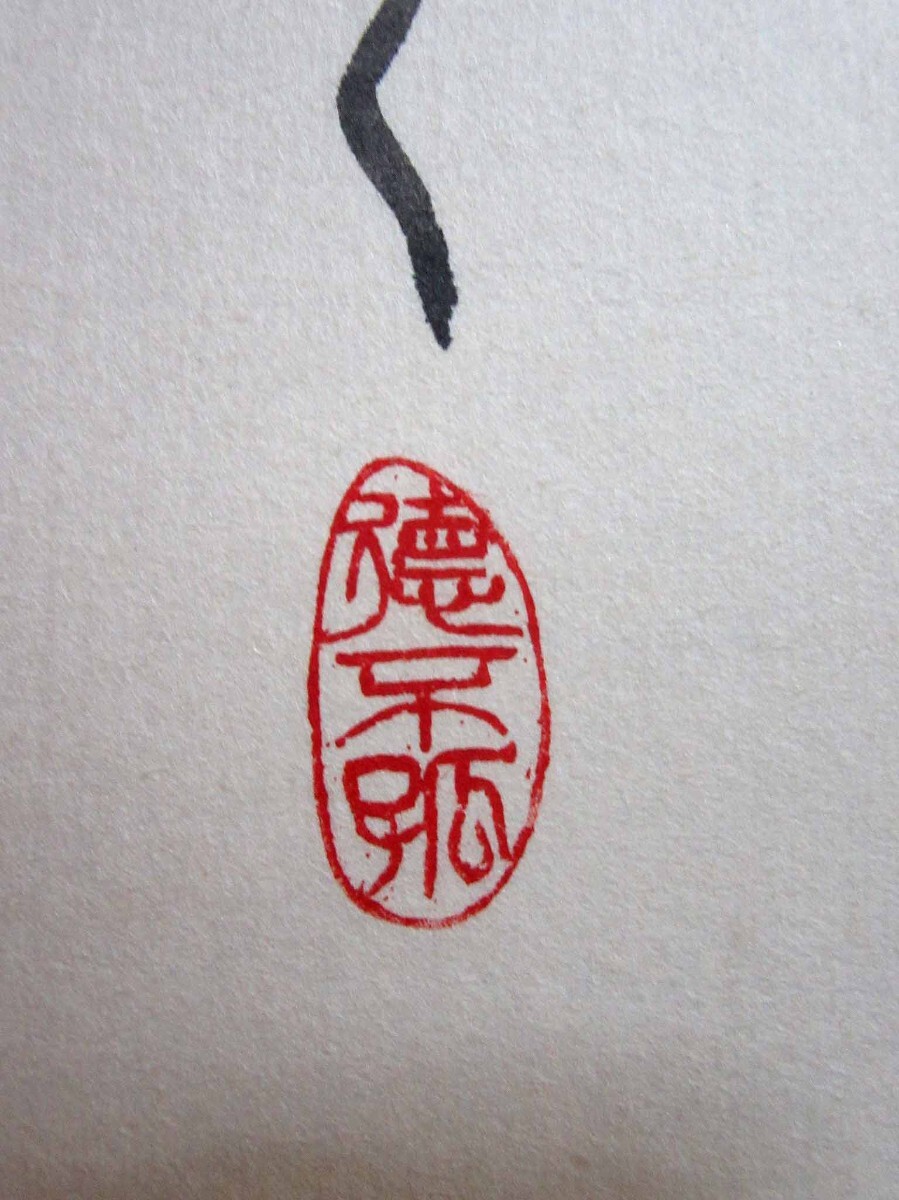 德
不
孤